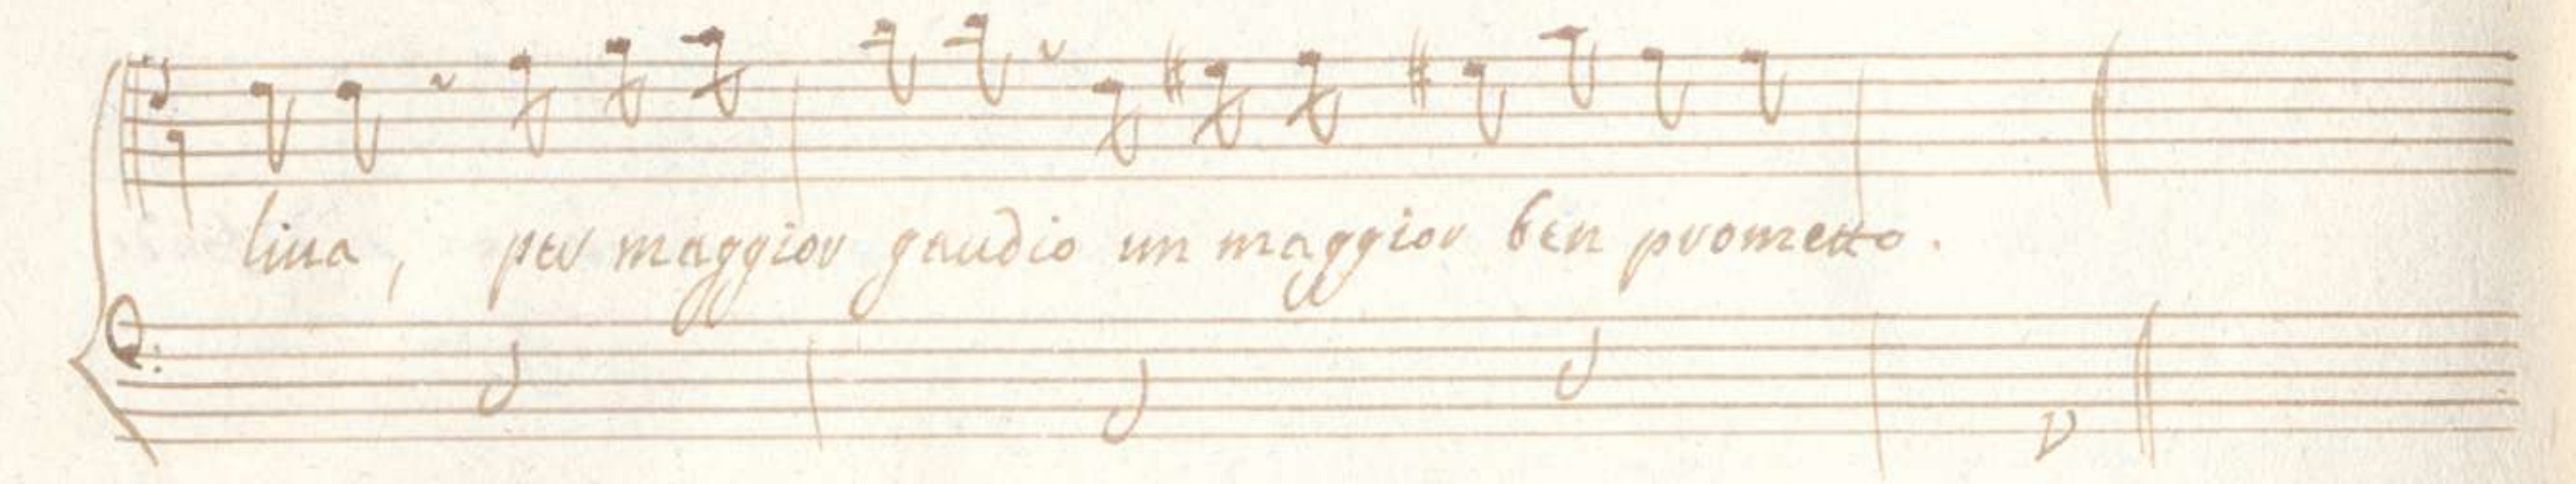 liua, per maggior gaudio un maggior ben prometto.